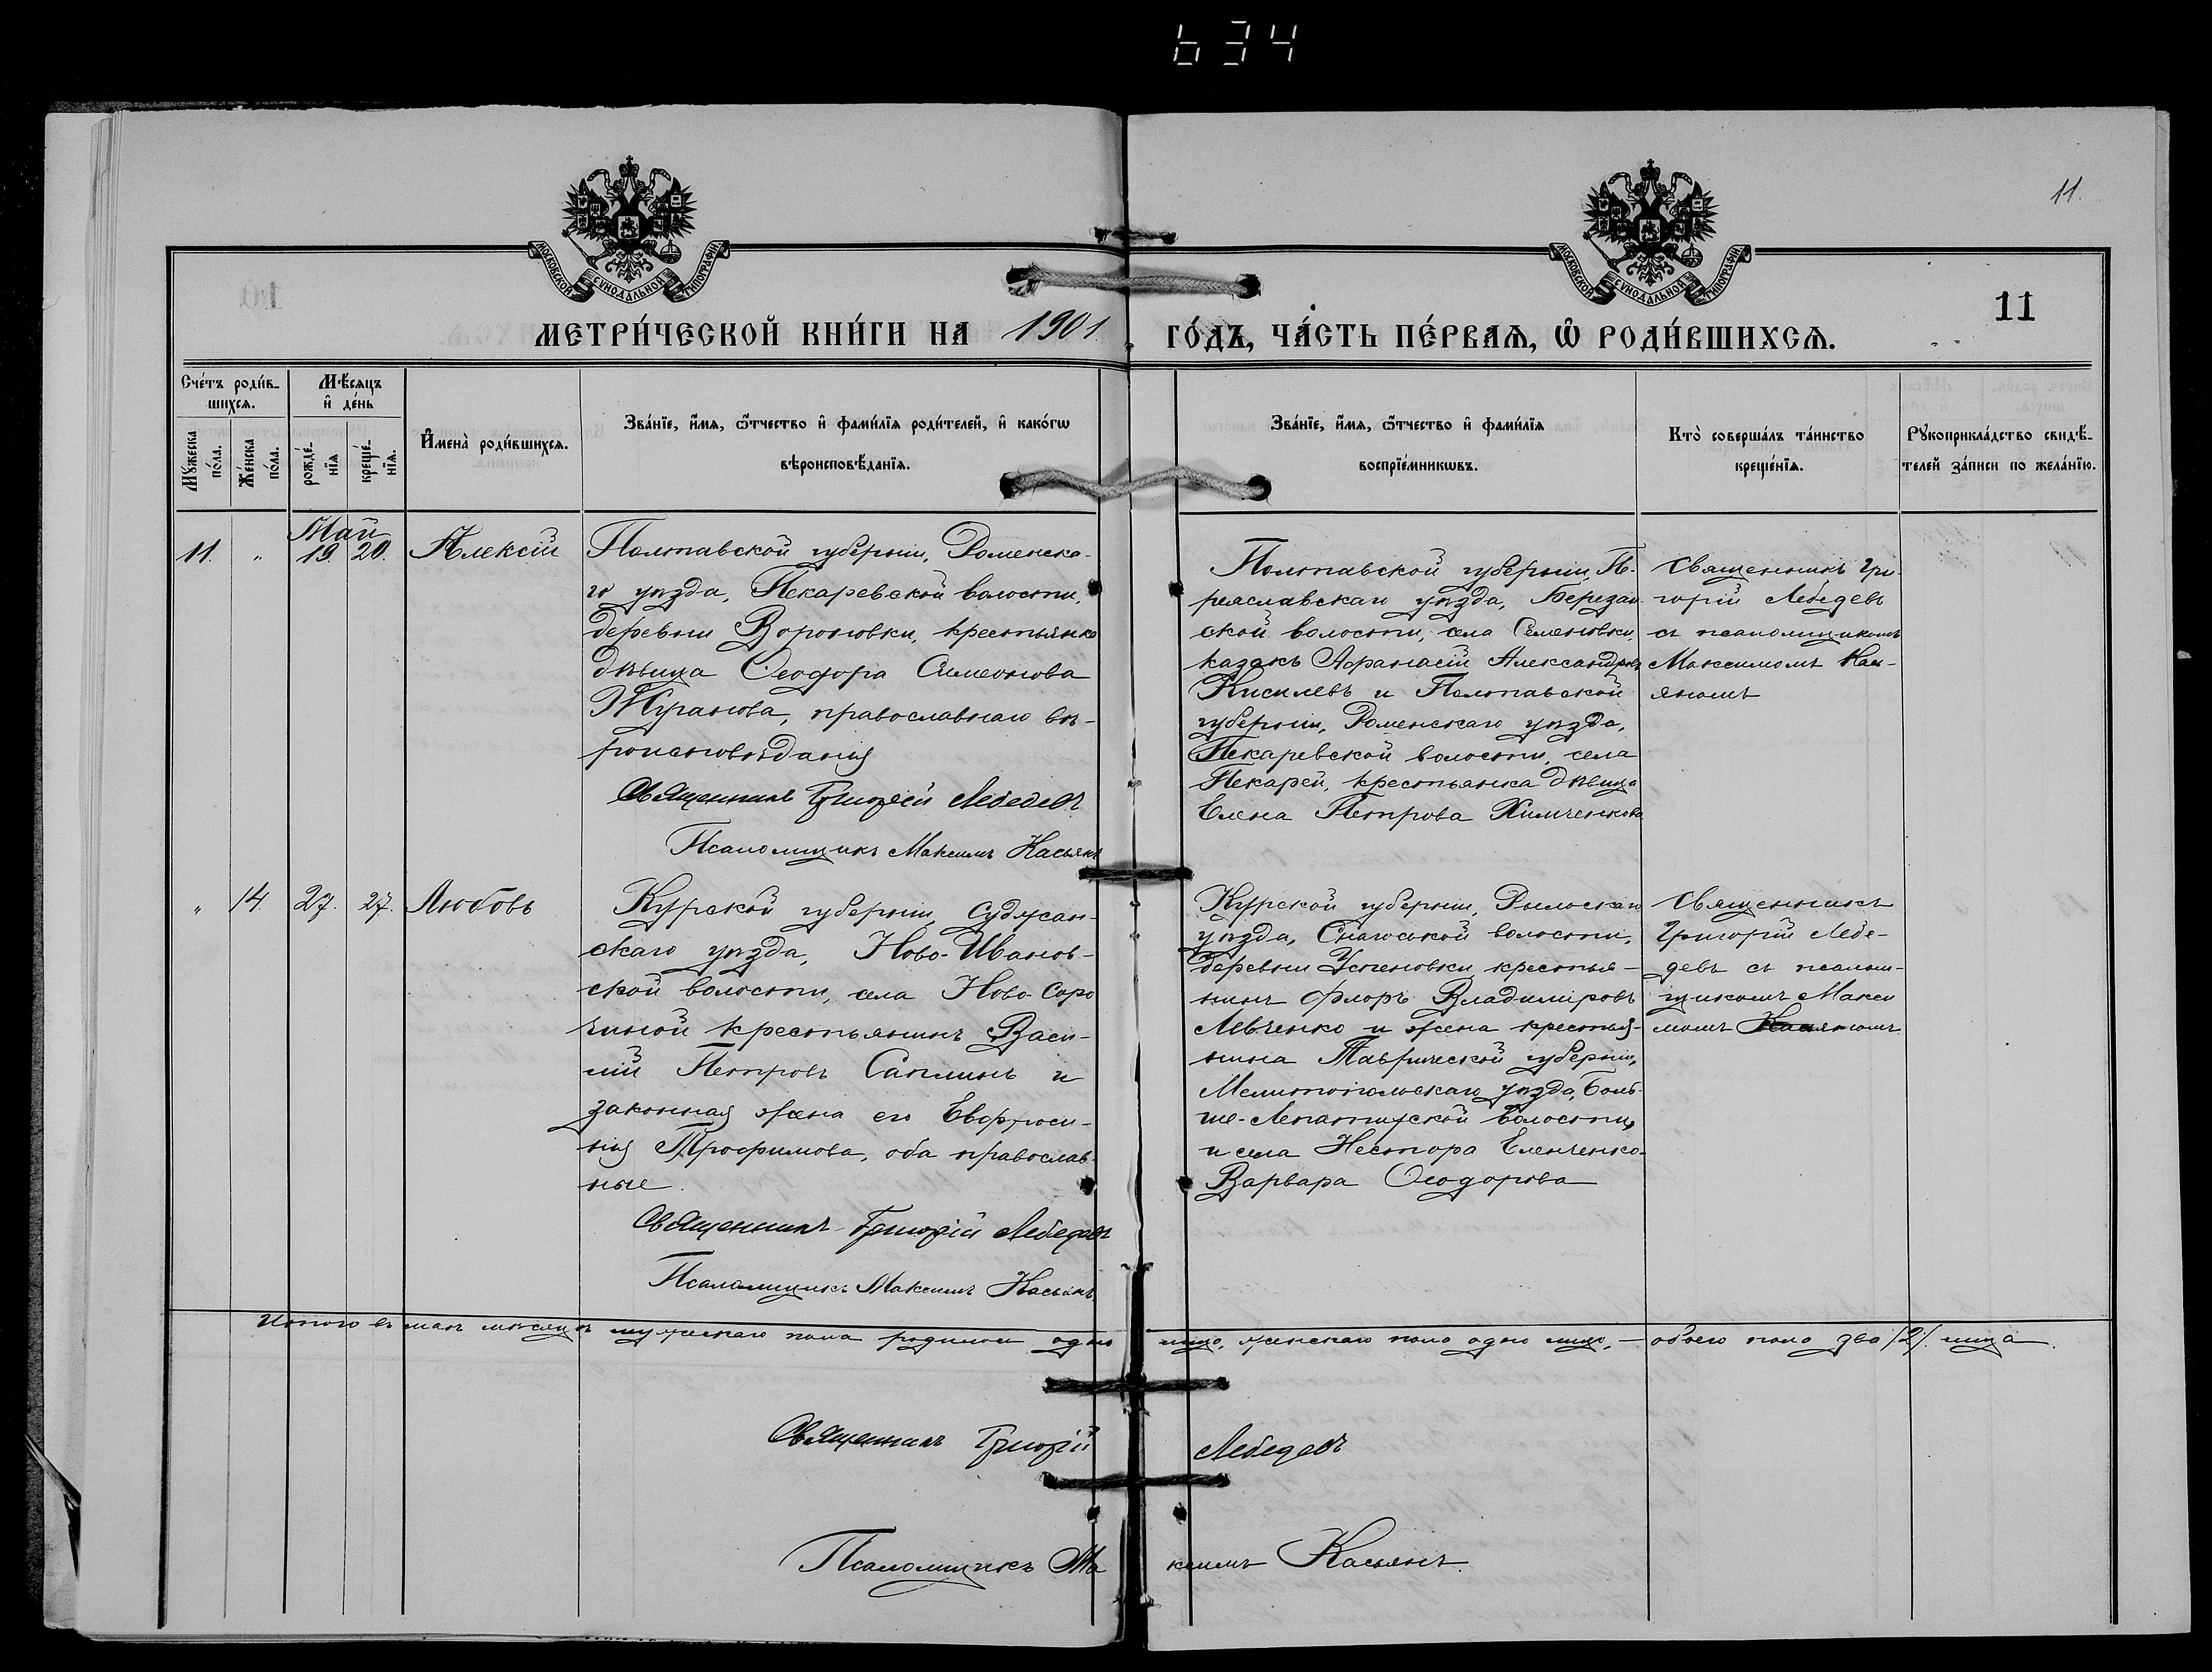 634
11.
МОСКОВСКОЙ СѴНОДАЛЬНОЙ ТИПОГРАФІИ
МОСКОВСКОЙ СѴНОДАЛЬНОЙ ТИПОГРАФІИ
11
МЕТРИ́ЧЕСКОЙ КНИ́ГИ НА 1901 ГО́ДЪ, ЧА́СТЬ ПЕ́РВАѦ, Ѽ РОДИ́ВШИХСѦ.
Сче́тъ роди́в-
шихсѧ.
Мꙋ́жеска по́ла.
Же́нска по́ла.
Мѣ́сѧцъ
и҆ де́нь
рожде́-нїѧ
креще́-нїѧ.
И҆мена̀ роди́вшихсѧ.
Зва́нїе, и҆́мѧ, ѻ҆́тчество и҆ фами́лїѧ роди́телей, и҆ како́гѡ
вѣроисповѣ́данїѧ.
Зва́нїе, и҆́мѧ, ѻ҆́тчество и҆ фами́лїѧ
воспрїе́мникѡвъ.
Кто̀ соверша́лъ та́инство
креще́нїѧ.
Рꙋкоприкла́дство свидѣ́-
телей за́писи по жела́нїю.
Май
11. " 19. 20. Алексій
Полтавской губерніи, Роменска-
го уѣзда, Пекаревской волости,
деревни Вороновки, крестьянка
дѣвица Ѳеодора Симеонова
Журанова, православнаго вѣ-
роисповѣданія
Священникъ Григорій Лебедевъ
Псаломщикъ Максимъ Касьянъ
Полтавской губерніи, Пе-
реяславскаго уѣзда, Березан-
ской волости, села Семеновки,
казакъ Аѳанасій Александровъ
Киселевъ и Полтавской
губерніи, Роменскаго уѣзда,
Пекаревской волости, села
Пекарей, крестьянка дѣвица
Елена Петрова Химченкова
Священникъ Гри-
горій Лебедевъ
съ псаломщикомъ
Максимомъ Кась-
яномъ
" 14. 27. 27. Любовь
Курской губерніи, Суджан-
скаго уѣзда, Ново-Иванов-
ской волости, села Ново-Соро
чиной крестьянинъ Васи-
лій Петровъ Саплинъ и
законная жена его Евфроси-
нія Трофимова, оба православ-
ные.
Священникъ Григорій Лебедевъ
Псаломщикъ Максимъ Касьянъ
Курской губерніи, Рыльскаго
уѣзда, Снагоской волости,
деревни Успеновки крестья-
нинъ Флоръ Владиміровъ
Левченко и жена крестья-
нина Таврической губерніи,
Мелитопольскаго уѣзда, Боль-
ше-Лепатихской волости,
и села Нестора Еленченко
Варвара Ѳеодорова
Священникъ
Григорій Лебе-
девъ съ псалом-
щикомъ Макси
момъ Касьяномъ
Итого въ маѣ мѣсяцѣ мужескаго пола родилось одно лицо, женскаго пола одно лицо, — обоего пола два /2/ лица.
Священникъ Григорій Лебедевъ
Псаломщикъ Максимъ Касьянъ.